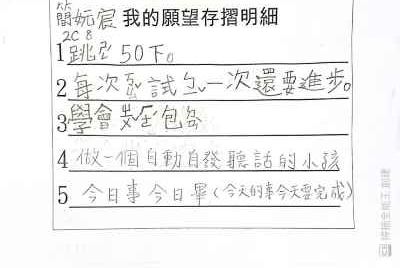 簡妧宸 我的願望存摺明細
2C 8
1 跳 50下。
2 每次 試 一次還要進步。
3 學會 包
4 做一個自動自發聽話的小孩
5 今日事今日畢(今天的事今天要完成)
掃描全能王 創建